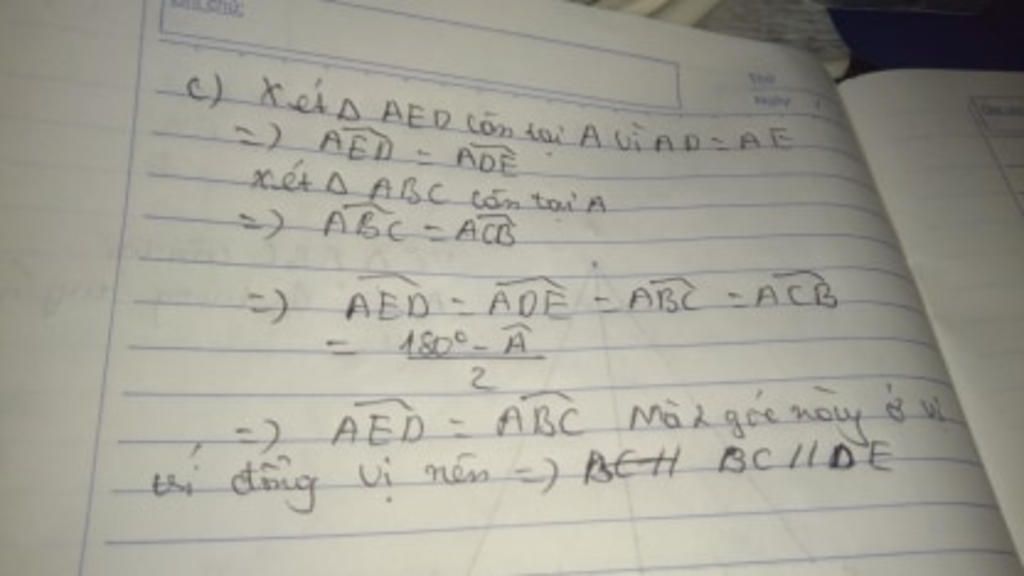 Ghi chú:
Thứ
Ngày
c) Xét Δ AED cân tại A vì AD = AE
=) \widehat{AED} = \widehat{ADE}
xét Δ ABC cân tại A
=) \widehat{ABC} = \widehat{ACB}
=) \widehat{AED} = \widehat{ADE} = \widehat{ABC} = \widehat{ACB}
= \frac{180° - \widehat{A}}{2}
=) \widehat{AED} = \widehat{ABC} Mà 2 góc này ở vị
trí đồng vị nên =) BC // DE